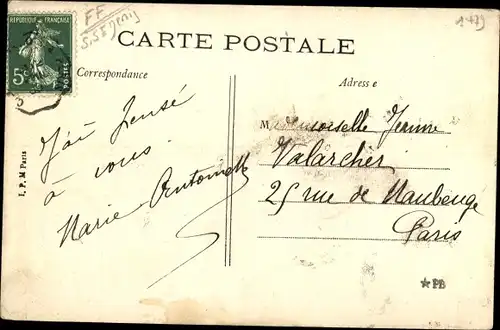 FF
147)
RÉPUBLIQUE FRANÇAISE
5c
POSTES
CARTE POSTALE
Correspondance
Adresse
J'ai pensé
à vous
Marie Antoinette
I. P. M Paris
Mademoiselle Jeanne
Valarcher
25 rue de Maubeuge
Paris
★PB